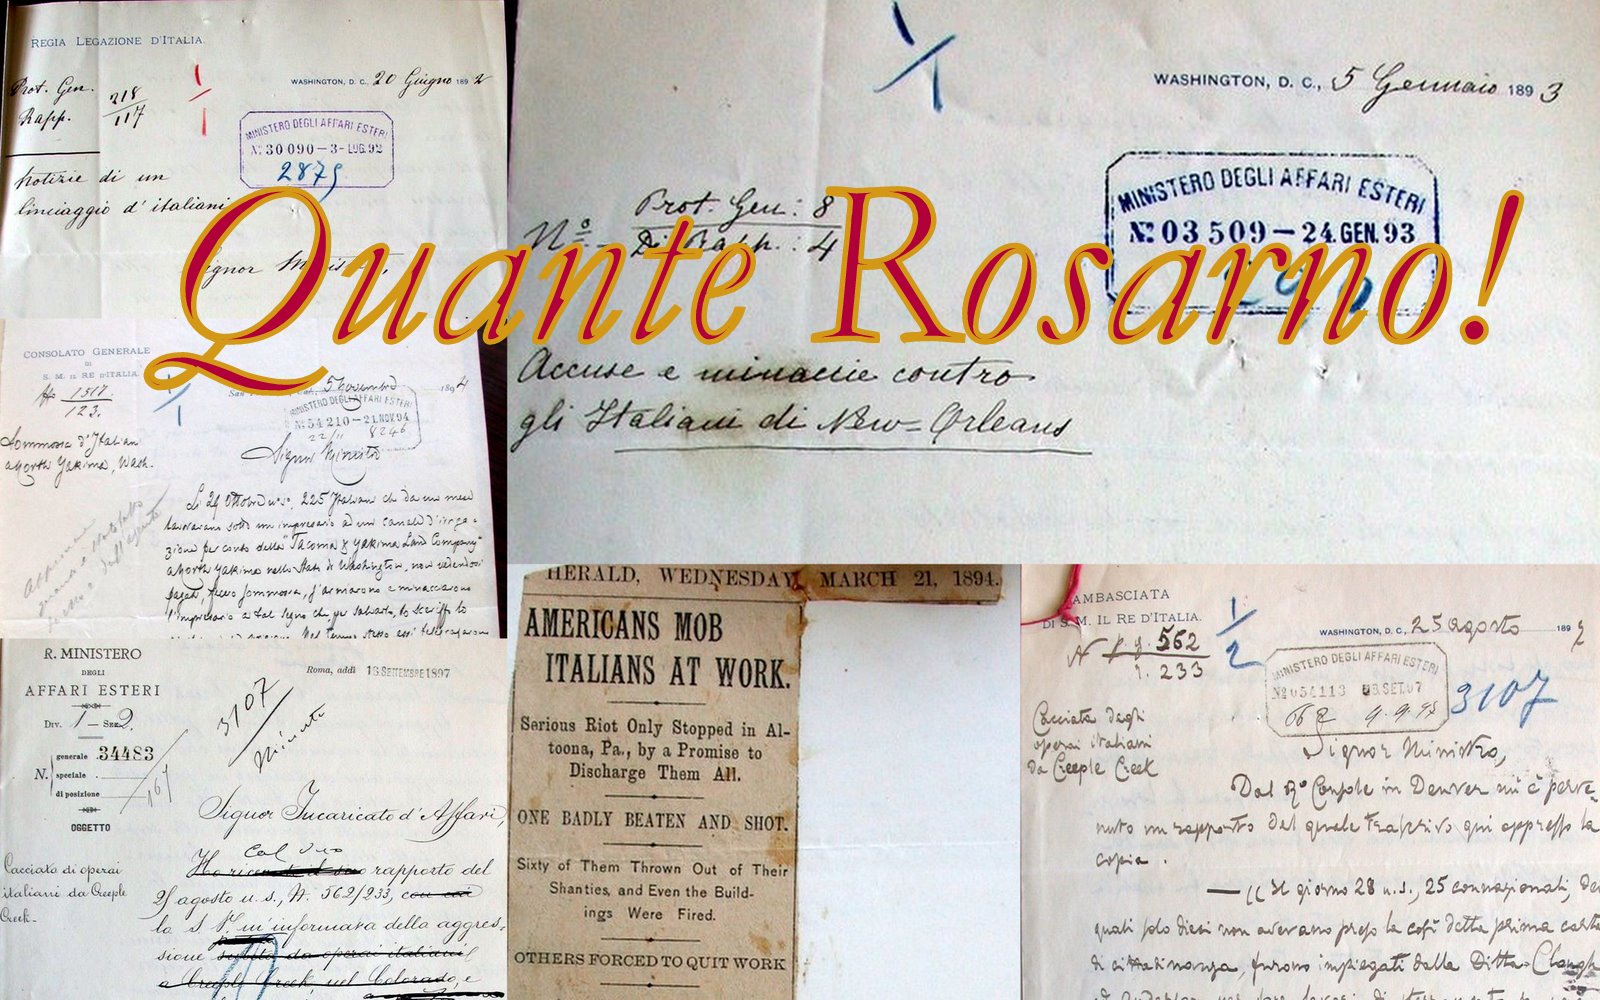 Quante Rosarno!
REGIA LEGAZIONE D'ITALIA
WASHINGTON, D. C., 20 Giugno 1892
Prot. Gen. 218
Rapp. 117
1/1
MINISTERO DEGLI AFFARI ESTERI
No. 30090-3-LUG.92
2879
Notizie di un
linciaggio d'italiani
1/1
WASHINGTON, D. C., 5 Gennaio 1893
MINISTERO DEGLI AFFARI ESTERI
No. 03509-24.GEN.93
No. Prot. Gen: 8
Di Rapp.: 4
Accuse e minaccie contro
gli Italiani di New=Orleans
CONSOLATO GENERALE
DI
S. M. IL RE D'ITALIA
No 1517
123.
1/1
5 Novembre 1894
MINISTERO DEGLI AFFARI ESTERI
No. 54210-21.NOV.94
8246
Sommossa d'Italiani
a North Yakima, Wash.
Signor Ministro
Li 24 Ottobre 225 Italiani che da un mese
lavoravano sotto un impresario ad un canale d'irriga-
zione per conto della "Tacoma & Yakima Land Company"
a North Yakima nello Stato di Washington, non vedendosi
pagati, fecero sommossa, s'armarono e minacciarono
l'impresario a tal segno che per salvarlo, lo sceriffo lo
R. MINISTERO
DEGLI
AFFARI ESTERI
Roma, addì 13 SETTEMBRE 1897
DIV. 1 - SEZ. 2
3107
Minuta
N. generale 34483
speciale
di posizione
164
OGGETTO
Cacciata di operai
italiani da Creeple
Creek.
Signor Incaricato d'Affari,
Col suo
Ho ricevuto il suo rapporto del
25 agosto u. s., N. 562/233, con cui
la S. V. m'informava della aggres-
sione subita da operai italiani
a Creeple Creek, nel Colorado, e
HERALD, WEDNESDAY, MARCH 21, 1894.
AMERICANS MOB
ITALIANS AT WORK.
Serious Riot Only Stopped in Al-
toona, Pa., by a Promise to
Discharge Them All.
ONE BADLY BEATEN AND SHOT.
Sixty of Them Thrown Out of Their
Shanties, and Even the Build-
ings Were Fired.
OTHERS FORCED TO QUIT WORK
AMBASCIATA
DI S. M. IL RE D'ITALIA.
WASHINGTON, D. C., 25 agosto 1897
N p. g. 562
r. 233
1/2
MINISTERO DEGLI AFFARI ESTERI
3107
Cacciata degli
operai italiani
da Creeple Creek
Signor Ministro,
Dal Ro Console in Denver mi è perve-
nuto un rapporto del quale trascrivo qui appresso la
copia.
— "Il giorno 28 u. s., 25 connazionali, dei
quali solo dieci non avevano preso la così detta prima carta
di cittadinanza, furono impiegati dalla Ditta